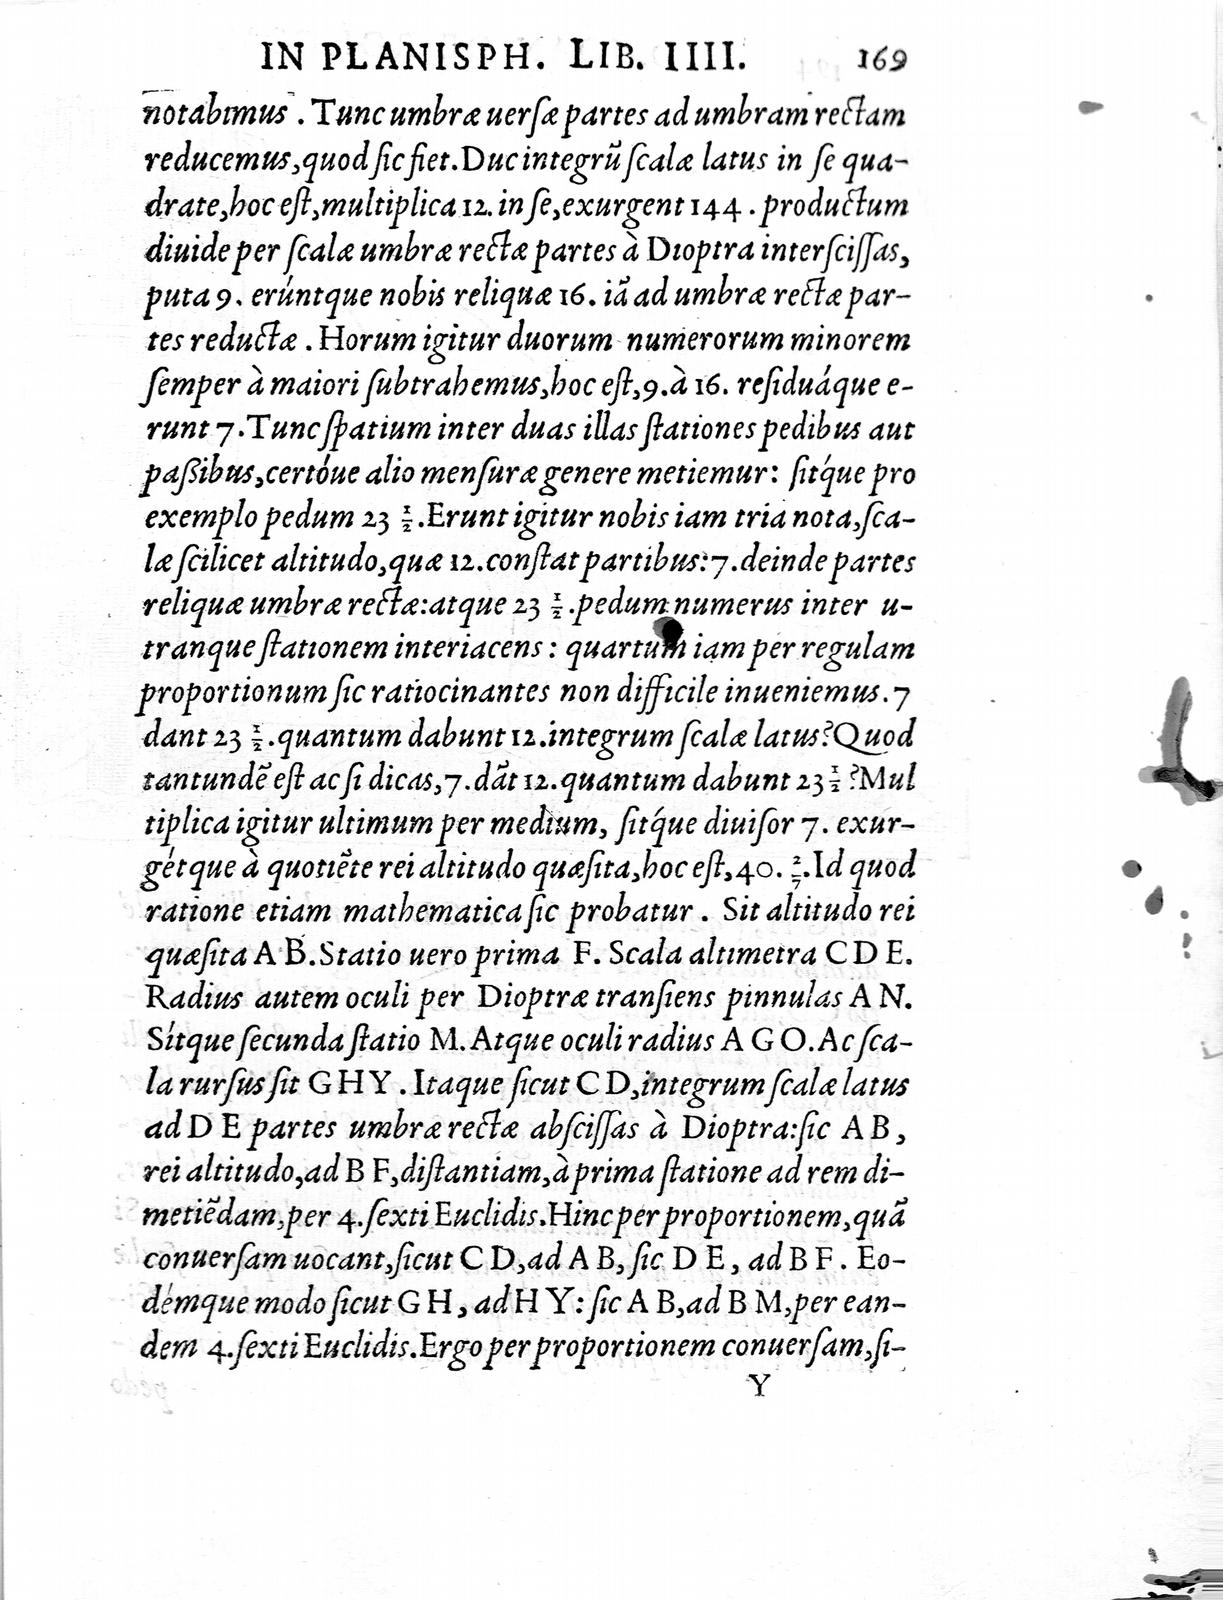 IN PLANISPH. LIB. IIII. 169
notabimus . Tunc umbræ uerſæ partes ad umbram rectam
reducemus, quod ſic fiet. Duc integrũ ſcalæ latus in ſe qua-
drate, hoc eſt, multiplica 12. in ſe, exurgent 144 . productum
diuide per ſcalæ umbræ rectæ partes à Dioptra interſciſſas,
puta 9. erúntque nobis reliquæ 16. iã ad umbræ rectæ par-
tes reductæ . Horum igitur duorum numerorum minorem
ſemper à maiori ſubtrahemus, hoc eſt, 9. à 16. reſiduáque e-
runt 7. Tunc ſpatium inter duas illas ſtationes pedibus aut
paßibus, certóue alio menſuræ genere metiemur: ſitq́ue pro
exemplo pedum 23 1/2. Erunt igitur nobis iam tria nota, ſca-
læ ſcilicet altitudo, quæ 12. conſtat partibus: 7. deinde partes
reliquæ umbræ rectæ: atque 23 1/2. pedum numerus inter u-
tranque ſtationem interiacens : quartum iam per regulam
proportionum ſic ratiocinantes non difficile inueniemus. 7
dant 23 1/2. quantum dabunt 12. integrum ſcalæ latus? Quod
tantundẽ eſt ac ſi dicas, 7. dãt 12. quantum dabunt 23 1/2 ? Mul
tiplica igitur ultimum per medium, ſitq́ue diuiſor 7. exur-
gétque à quotiẽte rei altitudo quæſita, hoc eſt, 40. 2/7. Id quod
ratione etiam mathematica ſic probatur . Sit altitudo rei
quæſita A B. Statio uero prima F. Scala altimetra C D E.
Radius autem oculi per Dioptræ tranſiens pinnulas A N.
Sítque ſecunda ſtatio M. Atque oculi radius A G O. Ac ſca-
la rurſus ſit G H Y . Itaque ſicut C D, integrum ſcalæ latus
ad D E partes umbræ rectæ abſciſſas à Dioptra: ſic A B,
rei altitudo, ad B F, diſtantiam, à prima ſtatione ad rem di-
metiẽdam, per 4. ſexti Euclidis. Hinc per proportionem, quã
conuerſam uocant, ſicut C D, ad A B, ſic D E, ad B F . Eo-
démque modo ſicut G H, ad H Y: ſic A B, ad B M, per ean-
dem 4. ſexti Euclidis. Ergo per proportionem conuerſam, ſi-
Y